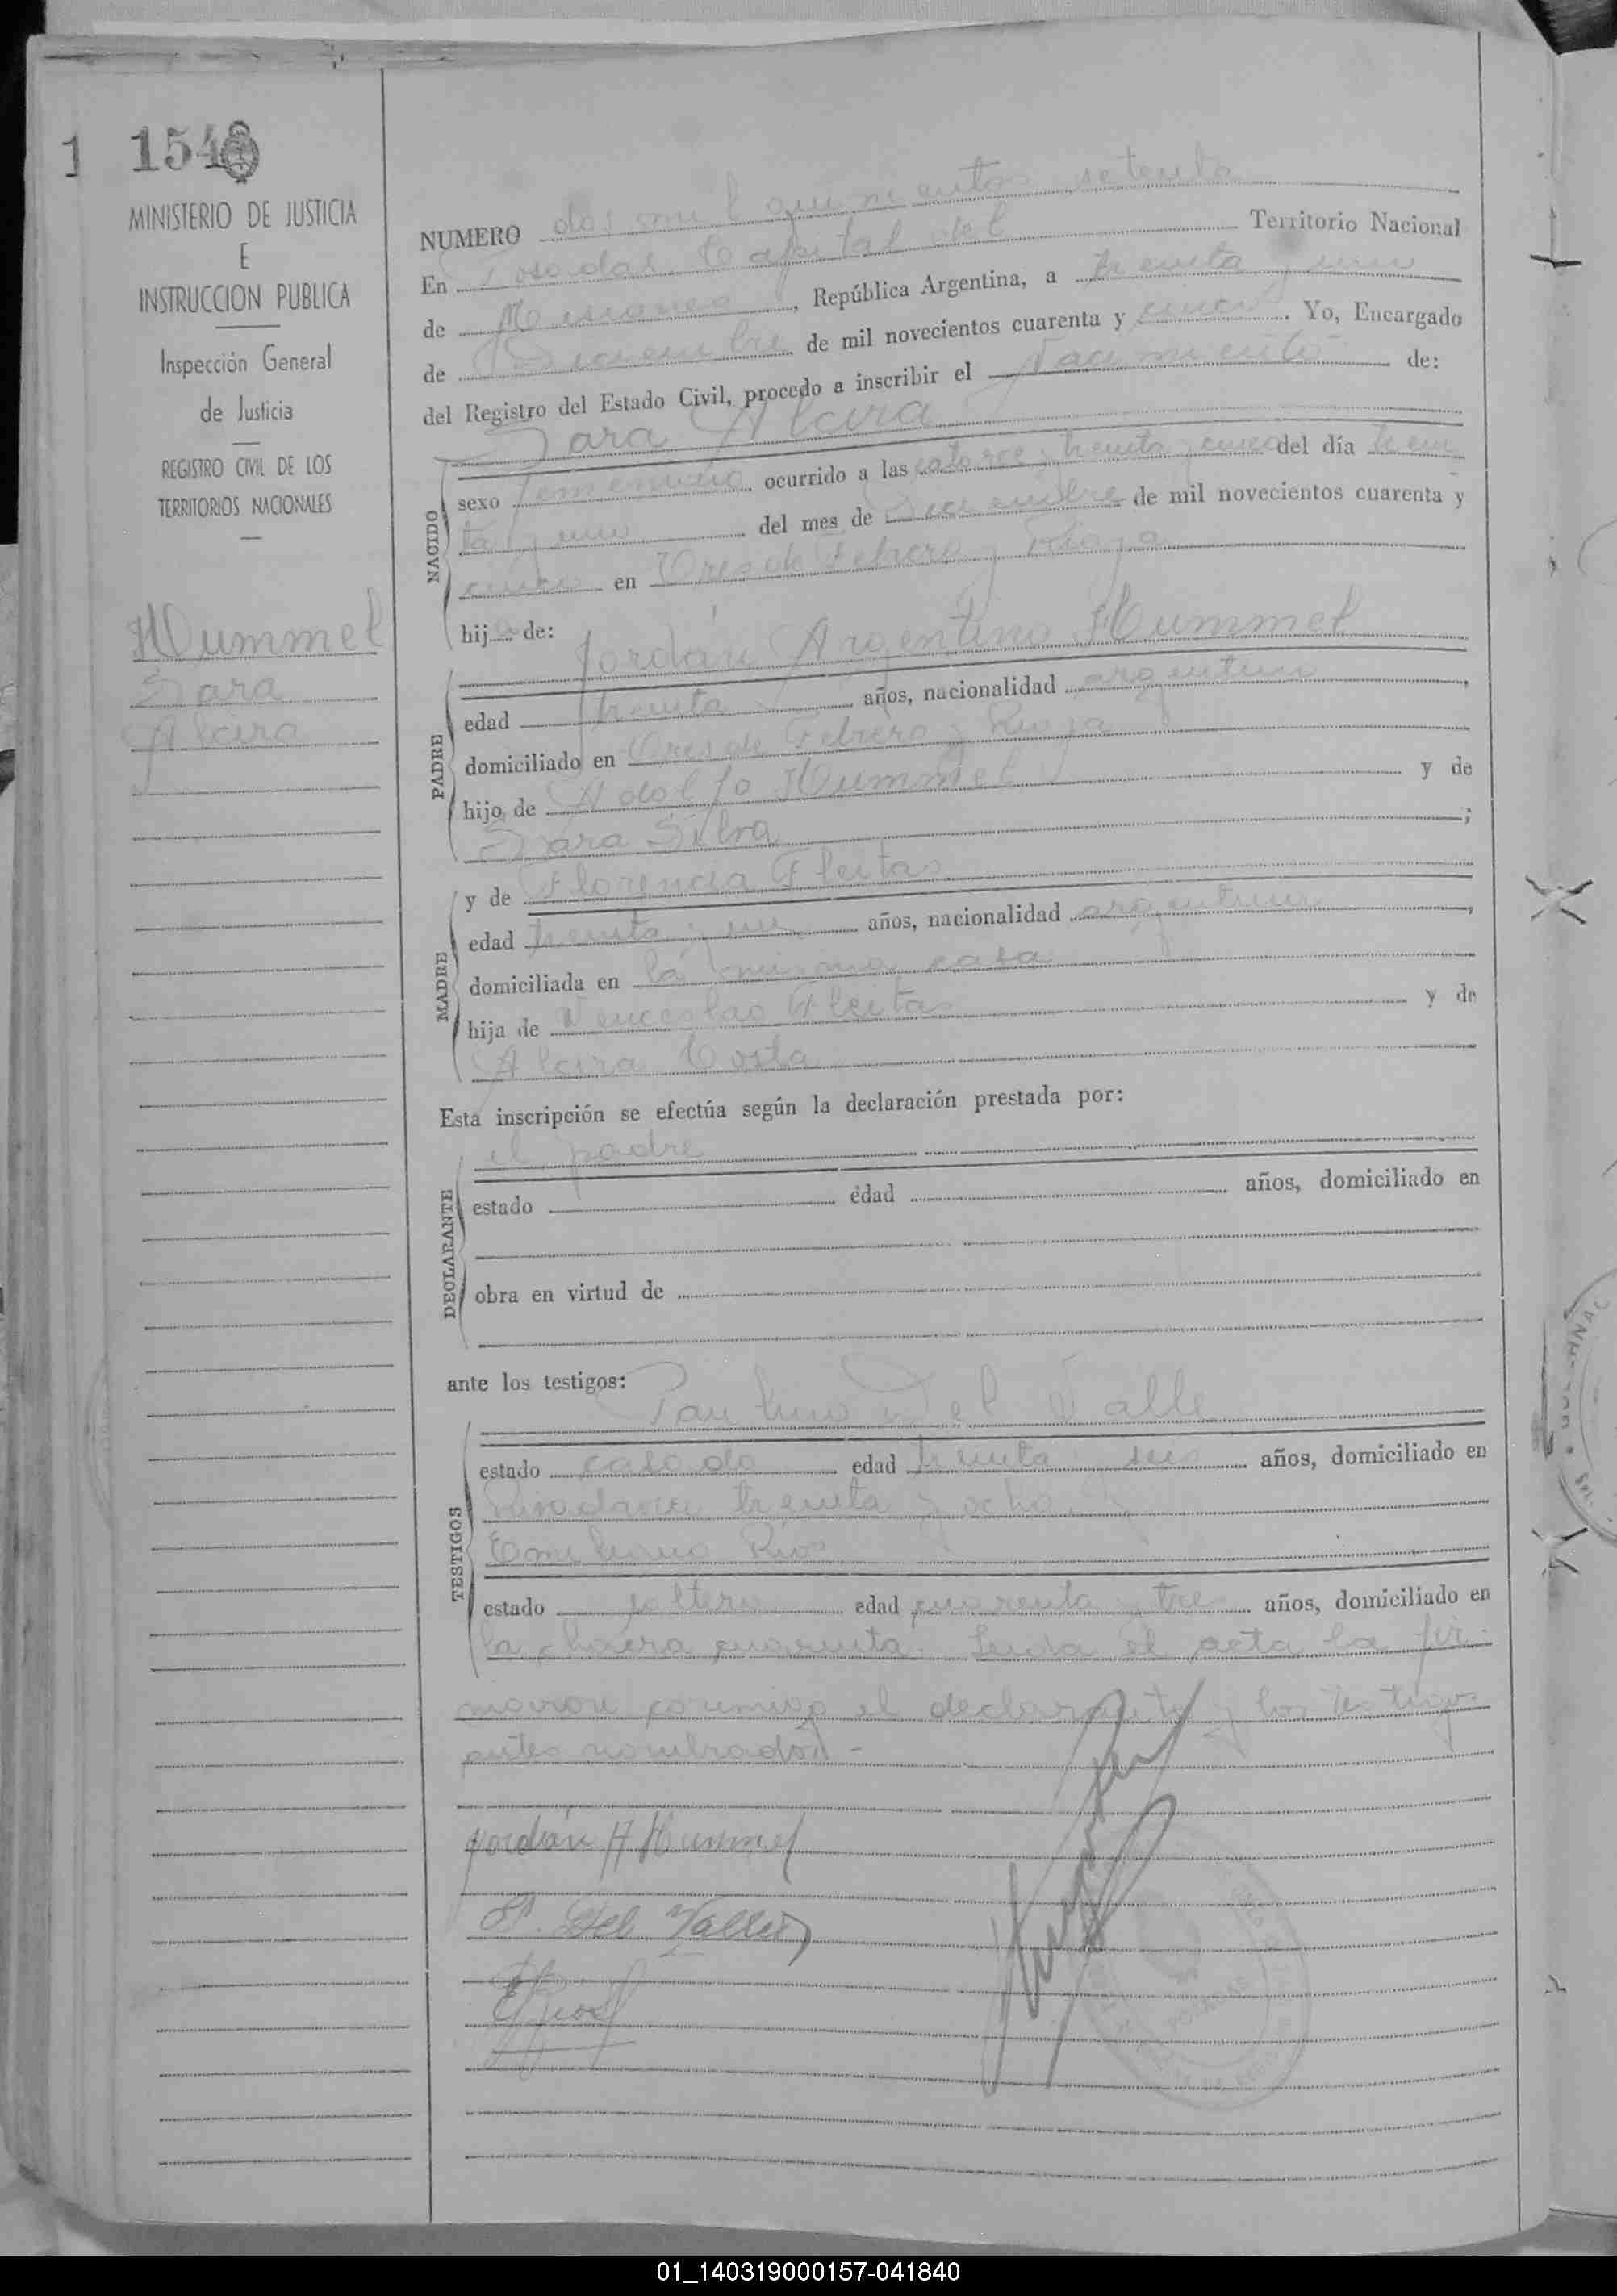 1 154
MINISTERIO DE JUSTICIA
E
INSTRUCCION PUBLICA
Inspección General
de Justicia
REGISTRO CIVIL DE LOS
TERRITORIOS NACIONALES
Hummel
Sara
Alcira
NUMERO dos mil quinientos setenta
En Posadas Capital del Territorio Nacional
de Misiones, República Argentina, a treinta y uno
de Diciembre de mil novecientos cuarenta y cinco. Yo, Encargado
del Registro del Estado Civil, procedo a inscribir el Nacimiento de:
Sara Alcira
NACIDO
sexo femenino ocurrido a las catorce y treinta y cinco del día trein
ta y uno del mes de Diciembre de mil novecientos cuarenta y
cinco en Tres de Febrero y Rioja
hija de:
Jordán Argentino Hummel
PADRE
edad treinta años, nacionalidad argentina,
domiciliado en Tres de Febrero y Rioja
hijo de Adolfo Hummel y de
Sara Silva ;
y de Florencia Fleitas
MADRE
edad treinta y un años, nacionalidad argentina,
domiciliada en la misma casa
hija de Wenceslao Fleitas y de
Alcira Costa
Esta inscripción se efectúa según la declaración prestada por:
el padre
DECLARANTE
estado edad años, domiciliado en
obra en virtud de
ante los testigos:
Del Valle
TESTIGOS
estado casado edad treinta y seis años, domiciliado en
Rivadavia treinta y ocho y
Emiliano Rios
estado soltero edad cuarenta y tres años, domiciliado en
la chacra cuarenta. Leida el acta la fir
maron conmigo el declarante y los testigos
antes nombrados.-
Jordán A Hummel
P. Del Valle
E Rios
POSADAS
01_140319000157-041840